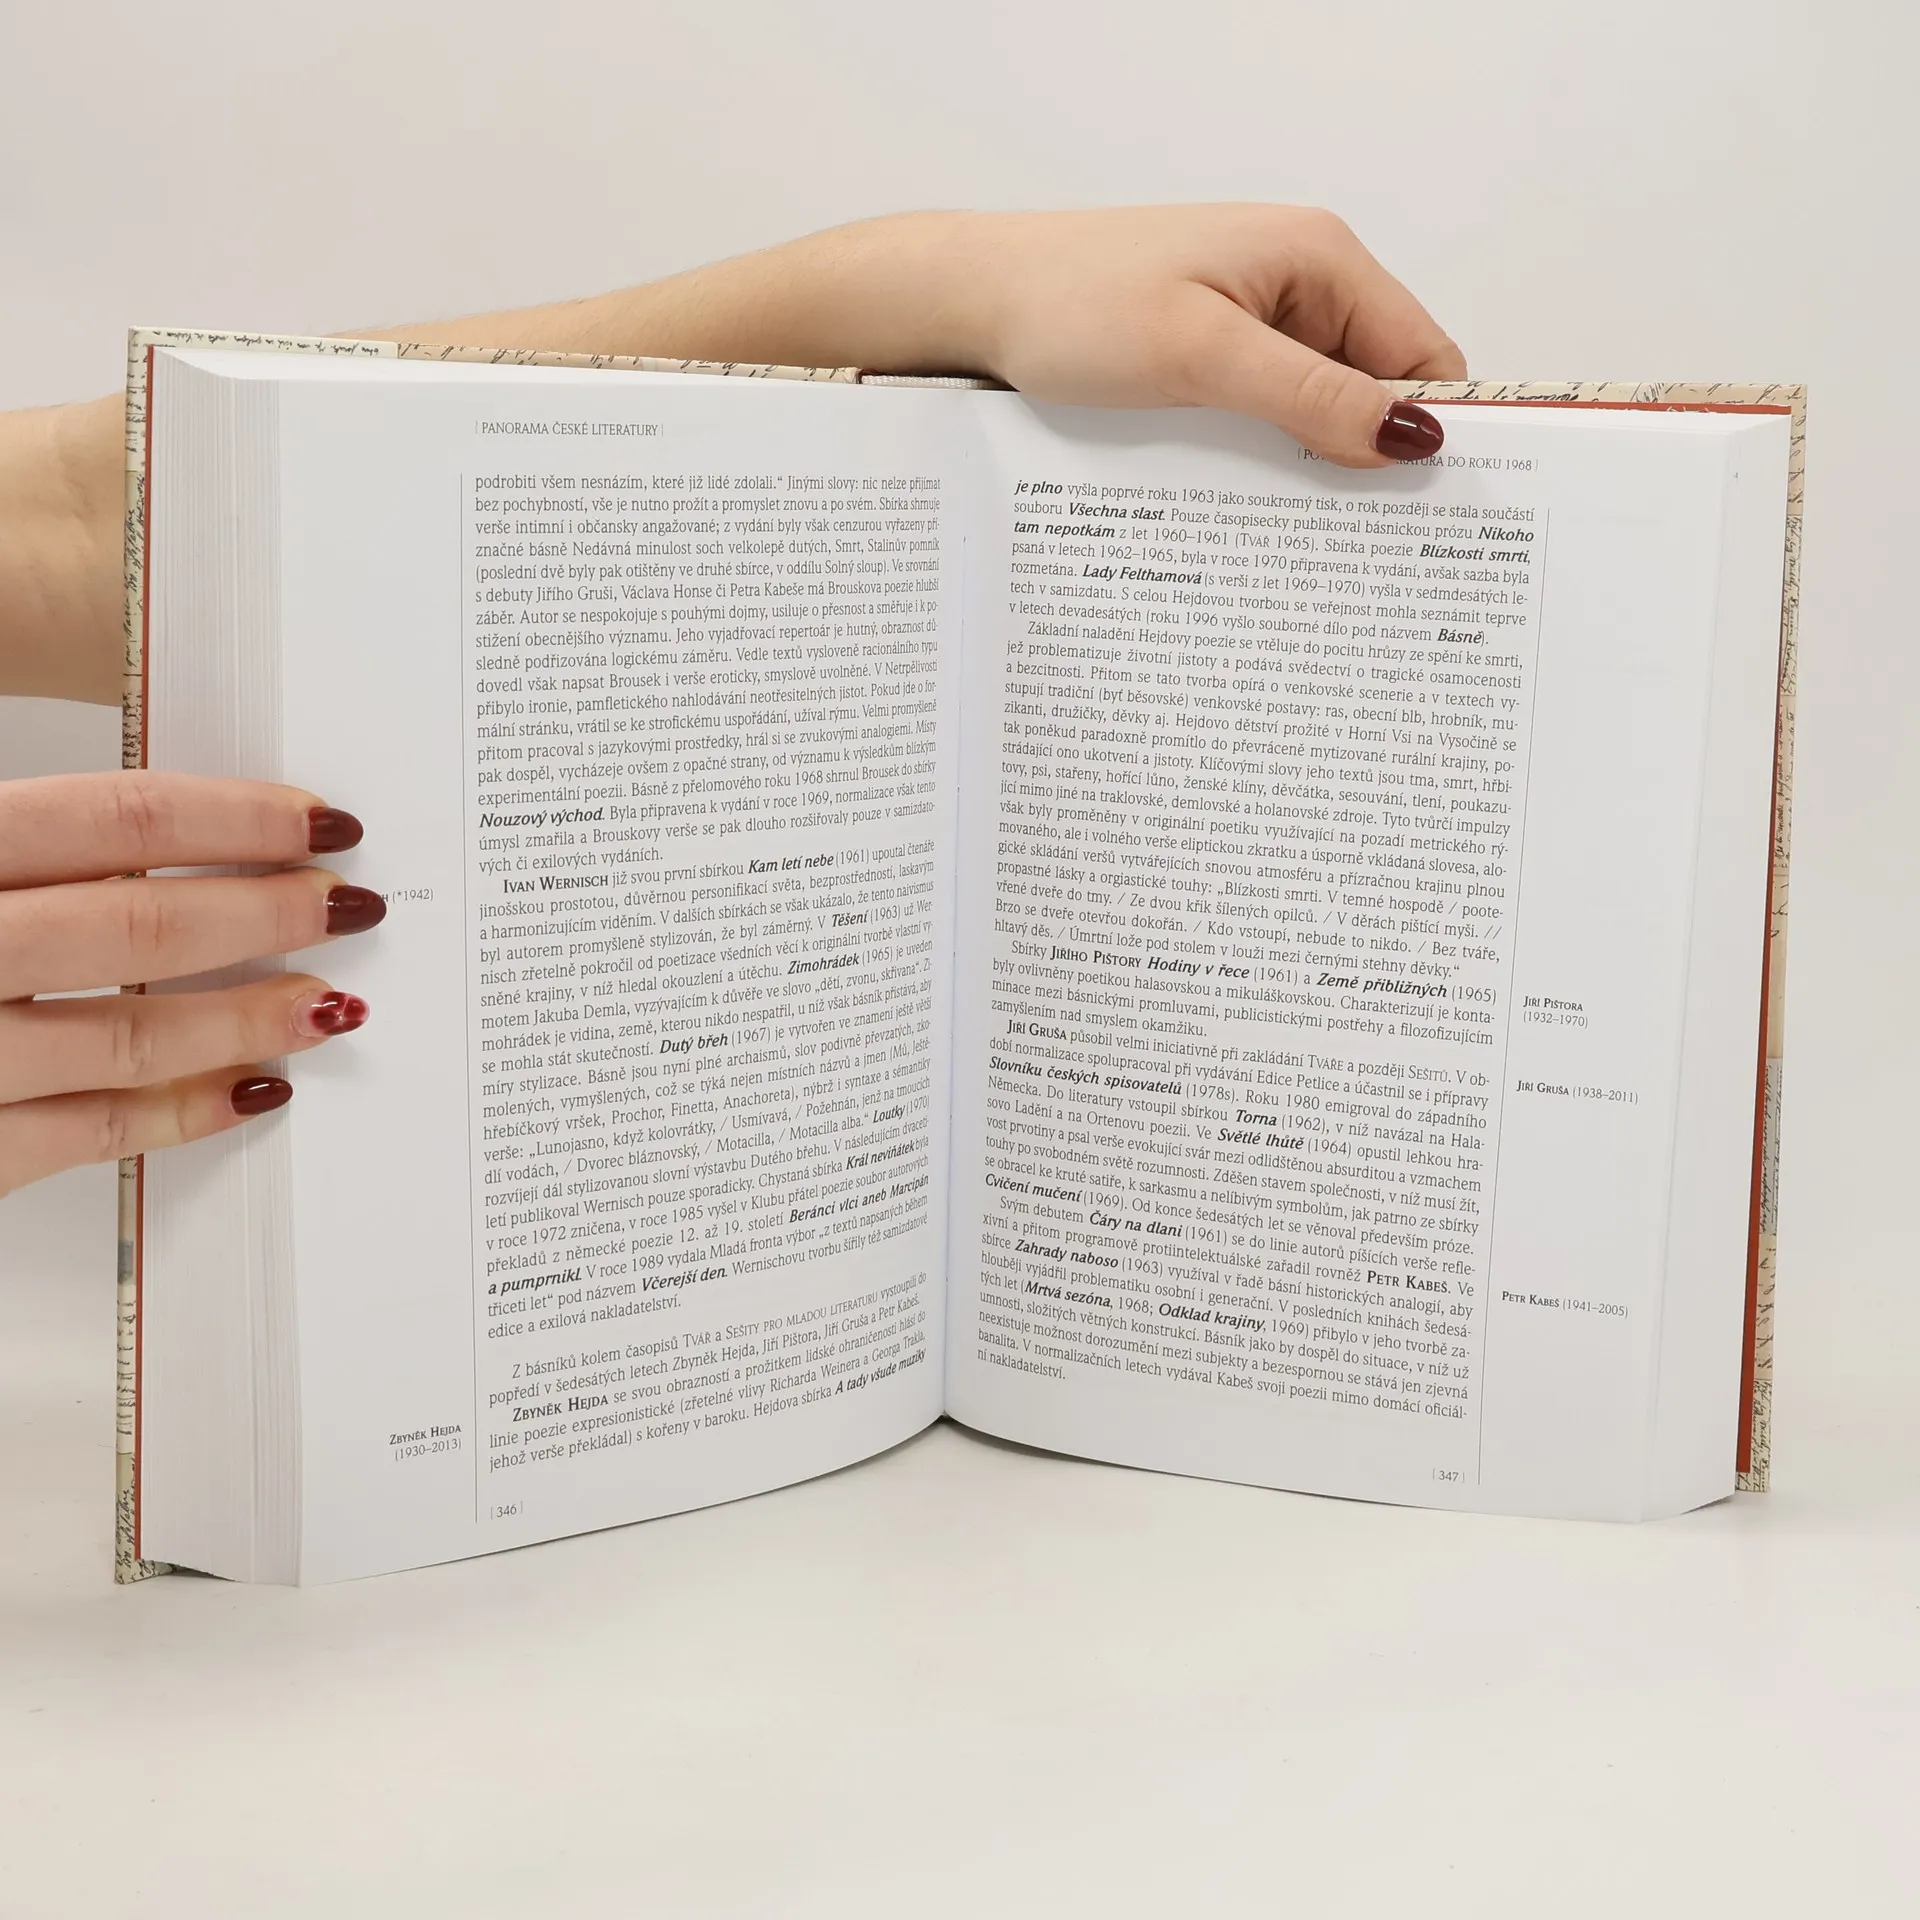 | PANORAMA ČESKÉ LITERATURY |
podrobiti všem nesnázím, které již lidé zdolali.“ Jinými slovy: nic nelze přijímat
bez pochybností, vše je nutno prožít a promyslet znovu a po svém. Sbírka shrnuje
verše intimní i občansky angažované; z vydání byly však cenzurou vyřazeny pří-
značné básně Nedávná minulost soch velkolepě dutých, Smrt, Stalinův pomník
(poslední dvě byly pak otištěny ve druhé sbírce, v oddílu Solný sloup). Ve srovnání
s debuty Jiřího Gruši, Václava Honse či Petra Kabeše má Brouskova poezie hlubší
záběr. Autor se nespokojuje s pouhými dojmy, usiluje o přesnost a směřuje i k po-
stižení obecnějšího významu. Jeho vyjadřovací repertoár je hutný, obraznost dů-
sledně podřizována logickému záměru. Vedle textů vysloveně racionálního typu
dovedl však napsat Brousek i verše eroticky, smyslově uvolněné. V Netrpělivosti
přibylo ironie, pamfletického nahlodávání neotřesitelných jistot. Pokud jde o for-
mální stránku, vrátil se ke strofickému uspořádání, užíval rýmu. Velmi promyšleně
přitom pracoval s jazykovými prostředky, hrál si se zvukovými analogiemi. Místy
pak dospěl, vycházeje ovšem z opačné strany, od významu k výsledkům blízkým
experimentální poezii. Básně z přelomového roku 1968 shrnul Brousek do sbírky
Nouzový východ. Byla připravena k vydání v roce 1969, normalizace však tento
úmysl zmařila a Brouskovy verše se pak dlouho rozšiřovaly pouze v samizdato-
vých či exilových vydáních.
IVAN WERNISCH již svou první sbírkou Kam letí nebe (1961) upoutal čtenáře
jinošskou prostotou, důvěrnou personifikací světa, bezprostředností, laskavým
a harmonizujícím viděním. V dalších sbírkách se však ukázalo, že tento naivismus
byl autorem promyšleně stylizován, že byl záměrný. V Těšení (1963) už Wer-
nisch zřetelně pokročil od poetizace všedních věcí k originální tvorbě vlastní vy-
sněné krajiny, v níž hledal okouzlení a útěchu. Zimohrádek (1965) je uveden
motem Jakuba Demla, vyzývajícím k důvěře ve slovo „dětí, zvonu, skřivana“. Zi-
mohrádek je vidina, země, kterou nikdo nespatřil, u níž však básník přistává, aby
se mohla stát skutečností. Dutý břeh (1967) je vytvořen ve znamení ještě větší
míry stylizace. Básně jsou nyní plné archaismů, slov podivně převzatých, zko-
molených, vymyšlených, což se týká nejen místních názvů a jmen (Mú, Ještě-
hřebíčkový vršek, Prochor, Finetta, Anachoreta), nýbrž i syntaxe a sémantiky
verše: „Lunojasno, když kolovrátky, / Usmívavá, / Požehnán, jenž na tmoucích
dlí vodách, / Dvorec bláznovský, / Motacilla, / Motacilla alba.“ Loutky (1970)
rozvíjejí dál stylizovanou slovní výstavbu Dutého břehu. V následujícím dvaceti-
letí publikoval Wernisch pouze sporadicky. Chystaná sbírka Král neviňátek byla
v roce 1972 zničena, v roce 1985 vyšel v Klubu přátel poezie soubor autorových
překladů z německé poezie 12. až 19. století Beránci vlci aneb Marcipán
a pumprnikl. V roce 1989 vydala Mladá fronta výbor „z textů napsaných během
třiceti let“ pod názvem Včerejší den. Wernischovu tvorbu šířily též samizdatové
edice a exilová nakladatelství.
Z básníků kolem časopisů TVÁŘ a SEŠITY PRO MLADOU LITERATURU vystoupili do
popředí v šedesátých letech Zbyněk Hejda, Jiří Pištora, Jiří Gruša a Petr Kabeš.
ZBYNĚK HEJDA se svou obrazností a prožitkem lidské ohraničenosti hlásí do
linie poezie expresionistické (zřetelné vlivy Richarda Weinera a Georga Trakla,
jehož verše překládal) s kořeny v baroku. Hejdova sbírka A tady všude muziky
H (*1942)
ZBYNĚK HEJDA
(1930–2013)
| 346 |
DO ROKU 1968 |
je plno vyšla poprvé roku 1963 jako soukromý tisk, o rok později se stala součástí
souboru Všechna slast. Pouze časopisecky publikoval básnickou prózu Nikoho
tam nepotkám z let 1960–1961 (TVÁŘ 1965). Sbírka poezie Blízkosti smrti,
psaná v letech 1962–1965, byla v roce 1970 připravena k vydání, avšak sazba byla
rozmetána. Lady Felthamová (s verši z let 1969–1970) vyšla v sedmdesátých le-
tech v samizdatu. S celou Hejdovou tvorbou se veřejnost mohla seznámit teprve
v letech devadesátých (roku 1996 vyšlo souborné dílo pod názvem Básně).
Základní naladění Hejdovy poezie se vtěluje do pocitu hrůzy ze spění ke smrti,
jež problematizuje životní jistoty a podává svědectví o tragické osamocenosti
a bezcitnosti. Přitom se tato tvorba opírá o venkovské scenerie a v textech vy-
stupují tradiční (byť běsovské) venkovské postavy: ras, obecní blb, hrobník, mu-
zikanti, družičky, děvky aj. Hejdovo dětství prožité v Horní Vsi na Vysočině se
tak poněkud paradoxně promítlo do převráceně mytizované rurální krajiny, po-
strádající ono ukotvení a jistoty. Klíčovými slovy jeho textů jsou tma, smrt, hřbi-
tovy, psi, stařeny, hořící lůno, ženské klíny, děvčátka, sesouvání, tlení, poukazu-
jící mimo jiné na traklovské, demlovské a holanovské zdroje. Tyto tvůrčí impulzy
však byly proměněny v originální poetiku využívající na pozadí metrického rý-
movaného, ale i volného verše eliptickou zkratku a úsporně vkládaná slovesa, alo-
gické skládání veršů vytvářejících snovou atmosféru a přízračnou krajinu plnou
propastné lásky a orgiastické touhy: „Blízkosti smrti. V temné hospodě / poote-
vřené dveře do tmy. / Ze dvou křik šílených opilců. / V děrách pištící myši. //
Brzo se dveře otevřou dokořán. / Kdo vstoupí, nebude to nikdo. / Bez tváře,
hltavý děs. / Úmrtní lože pod stolem v louži mezi černými stehny děvky.“
Sbírky JIŘÍHO PIŠTORY Hodiny v řece (1961) a Země přibližných (1965)
byly ovlivněny poetikou halasovskou a mikuláškovskou. Charakterizují je konta-
minace mezi básnickými promluvami, publicistickými postřehy a filozofizujícím
zamyšlením nad smyslem okamžiku.
JIŘÍ GRUŠA působil velmi iniciativně při zakládání TVÁŘE a později SEŠITŮ. V ob-
dobí normalizace spolupracoval při vydávání Edice Petlice a účastnil se i přípravy
Slovníku českých spisovatelů (1978s). Roku 1980 emigroval do západního
Německa. Do literatury vstoupil sbírkou Torna (1962), v níž navázal na Hala-
sovo Ladění a na Ortenovu poezii. Ve Světlé lhůtě (1964) opustil lehkou hra-
vost prvotiny a psal verše evokující svár mezi odlidštěnou absurditou a vzmachem
touhy po svobodném světě rozumnosti. Zděšen stavem společnosti, v níž musí žít,
se obracel ke kruté satiře, k sarkasmu a nelíbivým symbolům, jak patrno ze sbírky
Cvičení mučení (1969). Od konce šedesátých let se věnoval především próze.
Svým debutem Čáry na dlani (1961) se do linie autorů píšících verše refle-
xivní a přitom programově protiintelektuálské zařadil rovněž PETR KABEŠ. Ve
sbírce Zahrady naboso (1963) využíval v řadě básní historických analogií, aby
hlouběji vyjádřil problematiku osobní i generační. V posledních knihách šedesá-
tých let (Mrtvá sezóna, 1968; Odklad krajiny, 1969) přibylo v jeho tvorbě za-
umnosti, složitých větných konstrukcí. Básník jako by dospěl do situace, v níž už
neexistuje možnost dorozumění mezi subjekty a bezespornou se stává jen zjevná
banalita. V normalizačních letech vydával Kabeš svoji poezii mimo domácí oficiál-
ní nakladatelství.
JIŘÍ PIŠTORA
(1932–1970)
JIŘÍ GRUŠA (1938–2011)
PETR KABEŠ (1941–2005)
| 347 |